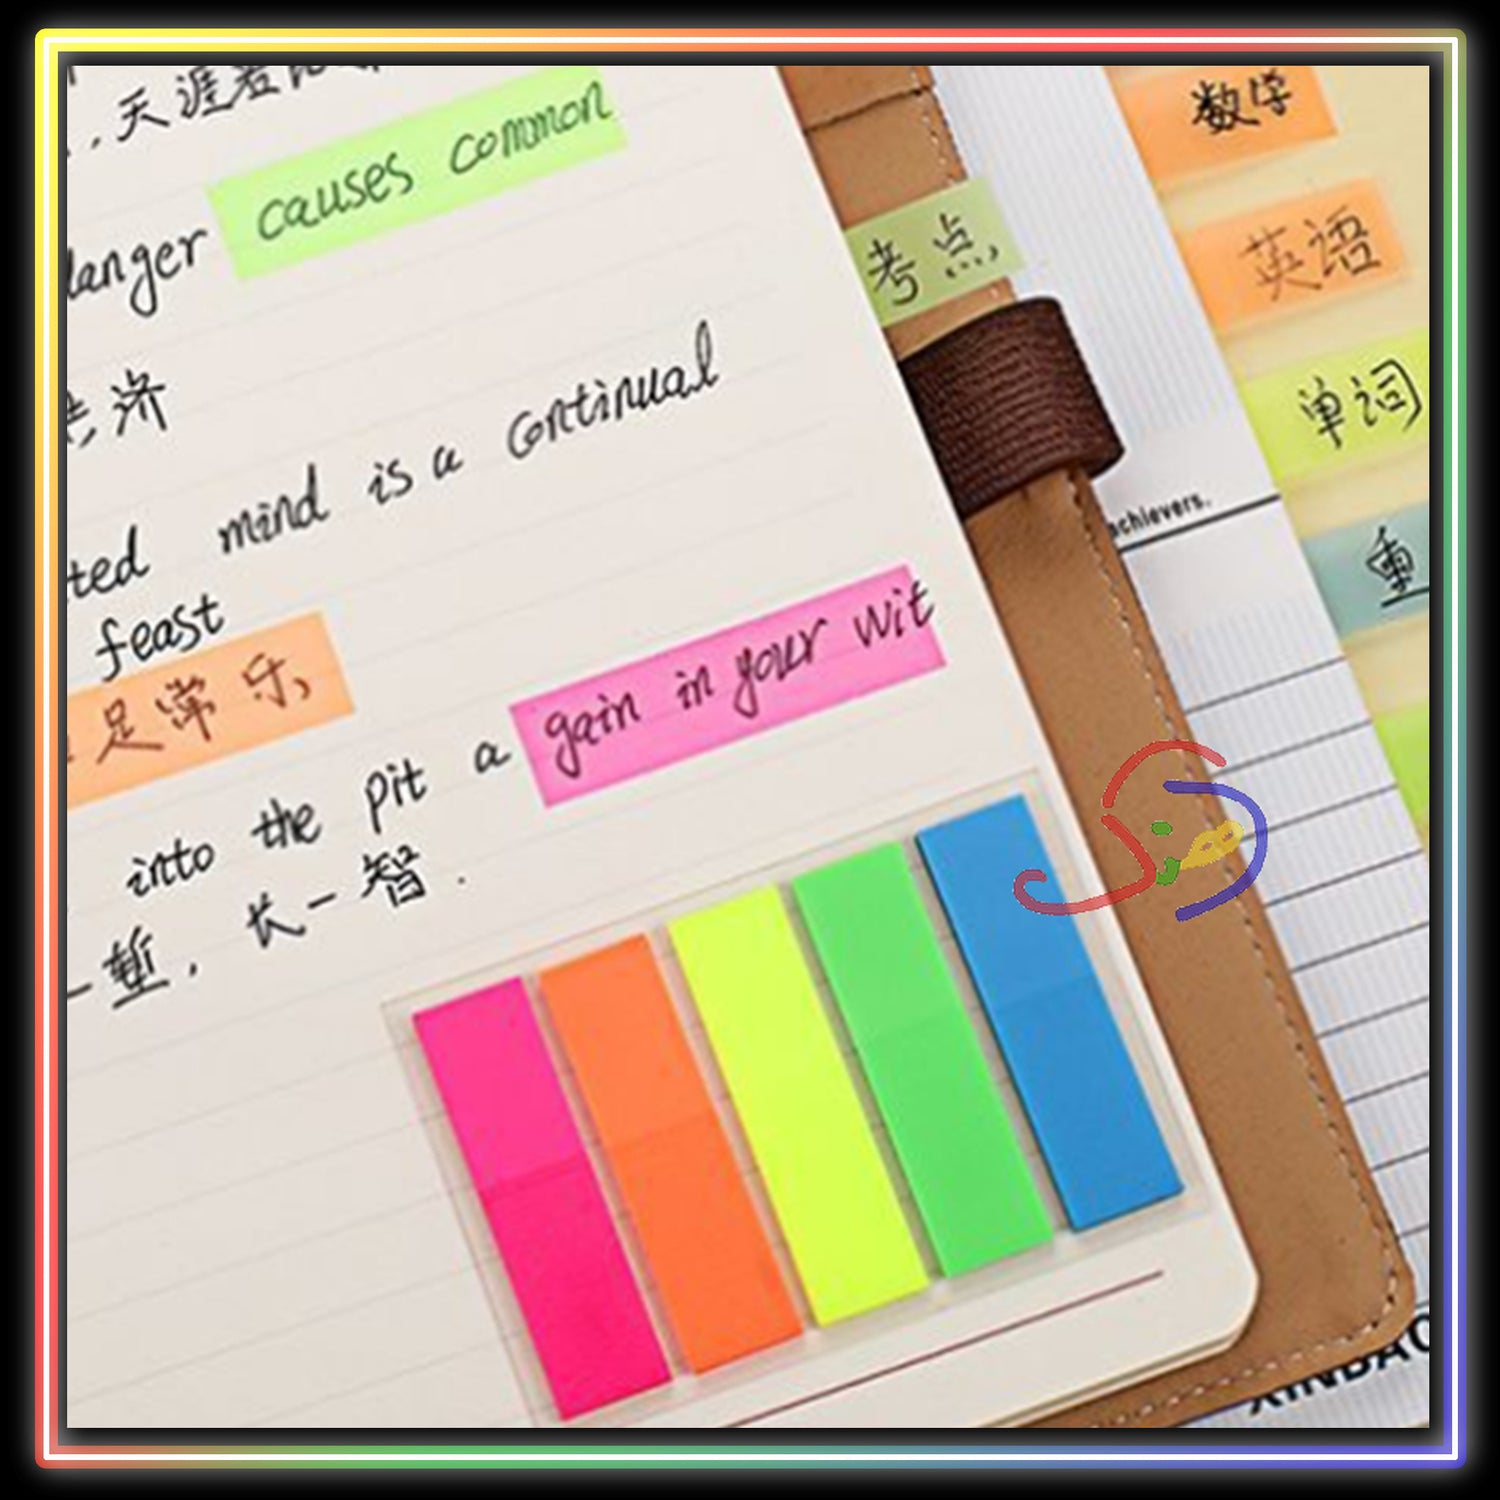 ,天涯若比邻
causes common
danger
共济
mind is a continual
feast
足常乐
into the pit a gain in your wit
一堑, 长一智.
考点
数学
英语
单词
重
achievers.